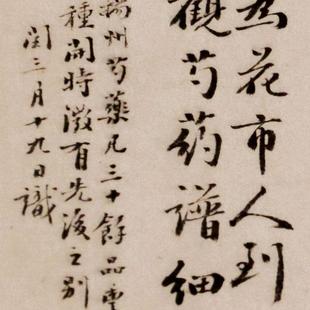 為花市人到
觀芍药譜细
揚州芍藥凡三十餘品
種開時激有先後之别
閏三月十九日識